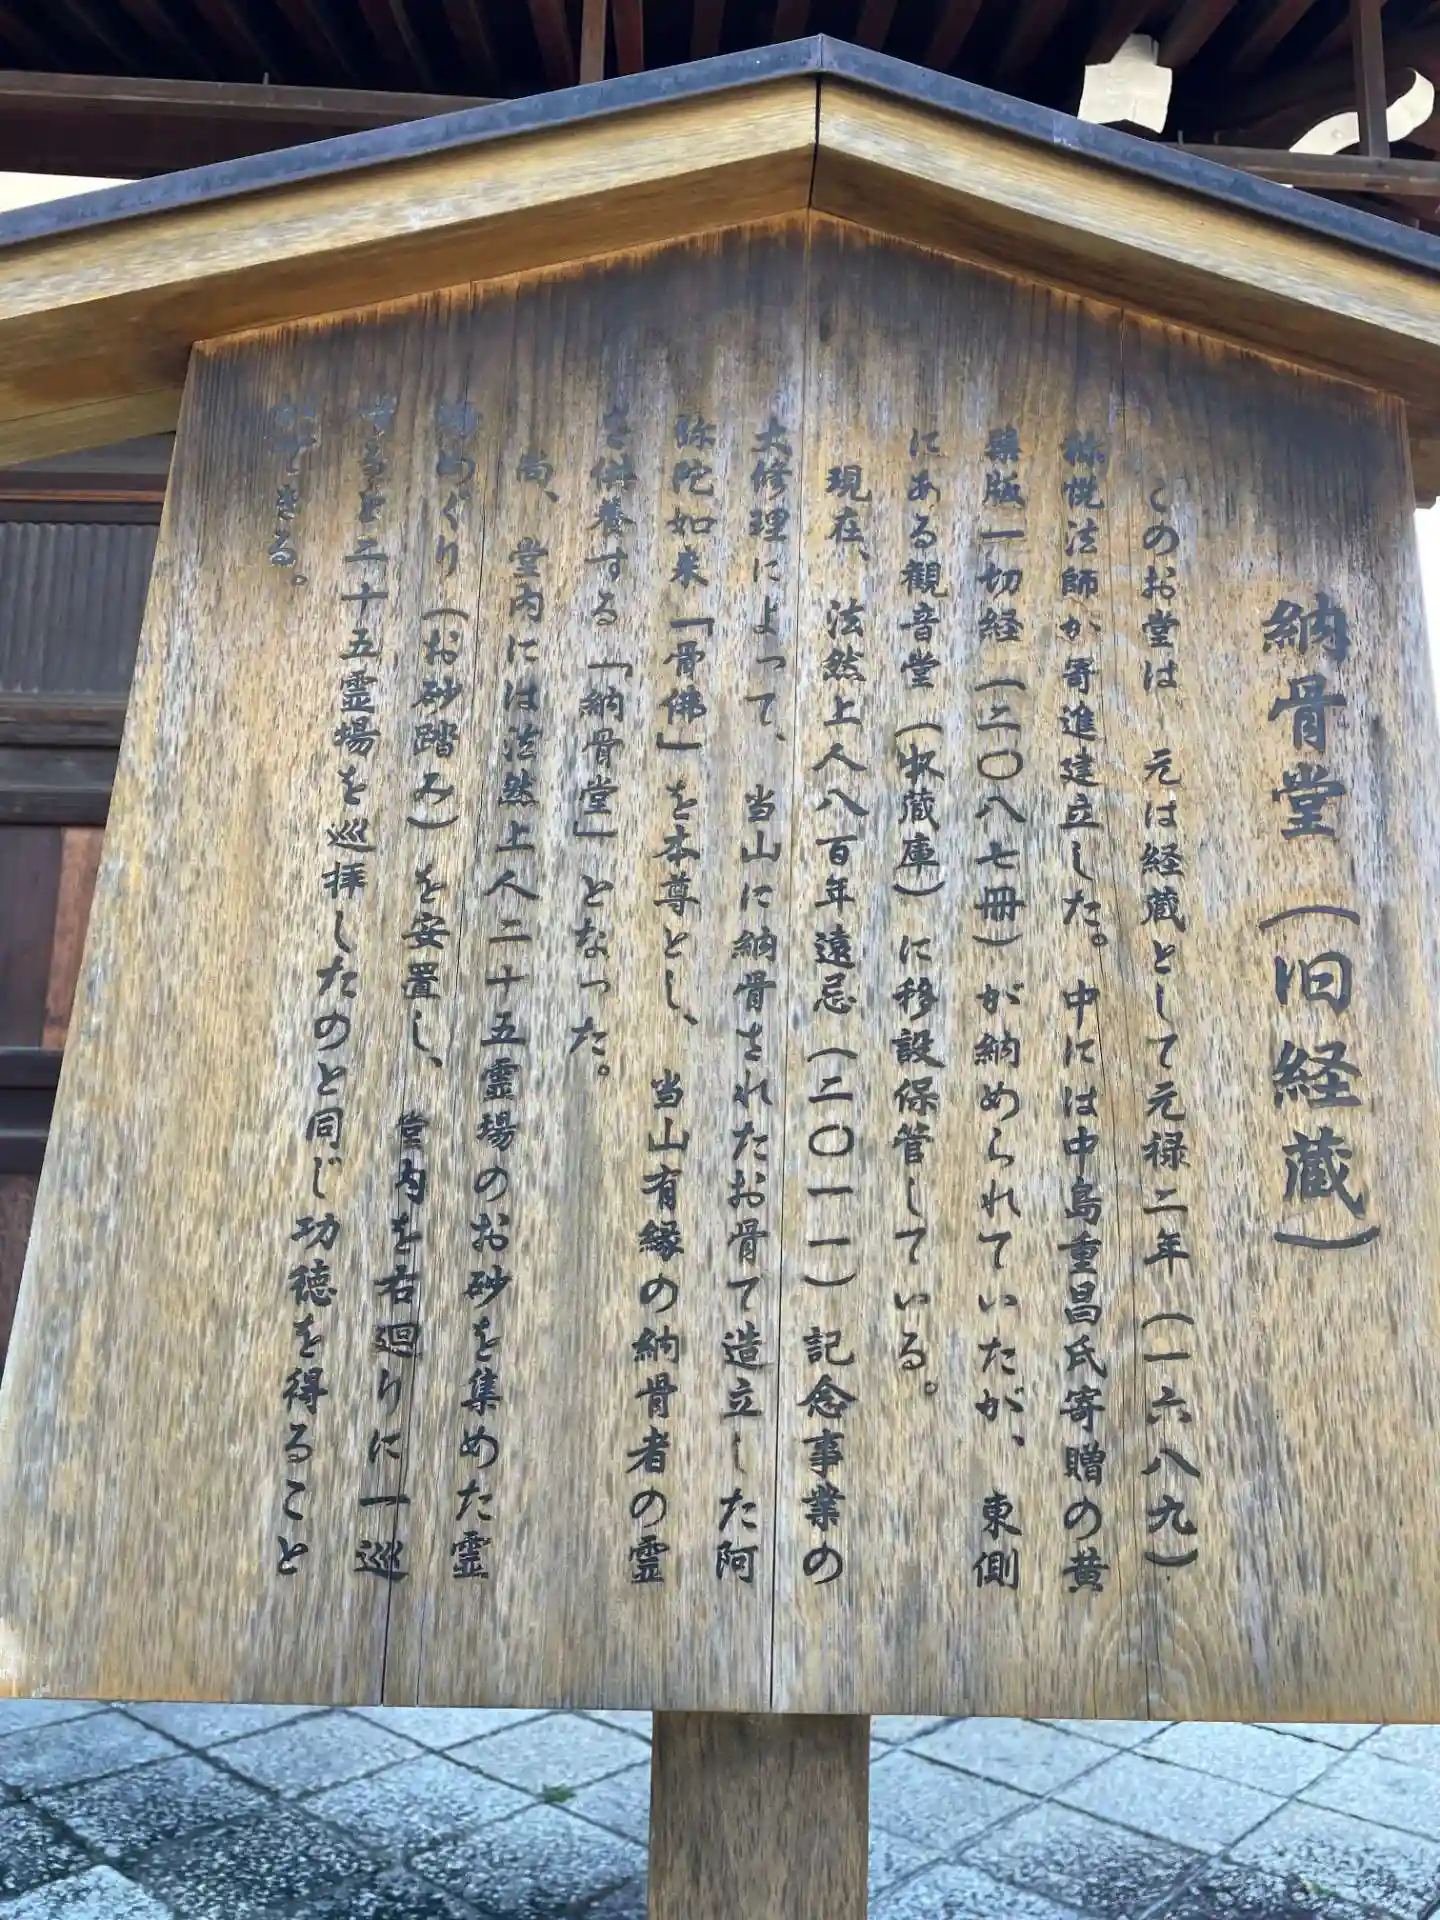 納骨堂(旧経蔵)
このお堂は 元は経蔵として元禄二年(一六八九)
称悦法師が寄進建立した。中には中島重昌氏寄贈の黄
檗版一切経(二〇八七冊)が納められていたが、東側
にある観音堂(収蔵庫)に移設保管している。
現在、法然上人八百年遠忌(二〇一一)記念事業の
大修理によって、当山に納骨されたお骨て造立した阿
弥陀如来「骨佛」を本尊とし、当山有縁の納骨者の霊
を供養する「納骨堂」となった。
尚、堂内には法然上人二十五霊場のお砂を集めた霊
場めぐり(お砂踏み)を安置し、堂内を右廻りに一巡
すると二十五霊場を巡拝したのと同じ功徳を得ること
ができる。